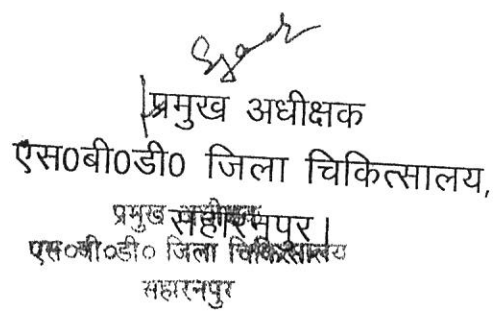 प्रमुख अधीक्षक
एस0बी0डी0 जिला चिकित्सालय,
सहारनपुर।
प्रमुख
एस०बी०डी० जिला चिकित्सालय
सहारनपुर